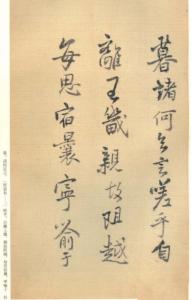 暮諸何久言嗟乎自
離王畿親故阻越
每思宿曩寧喻于